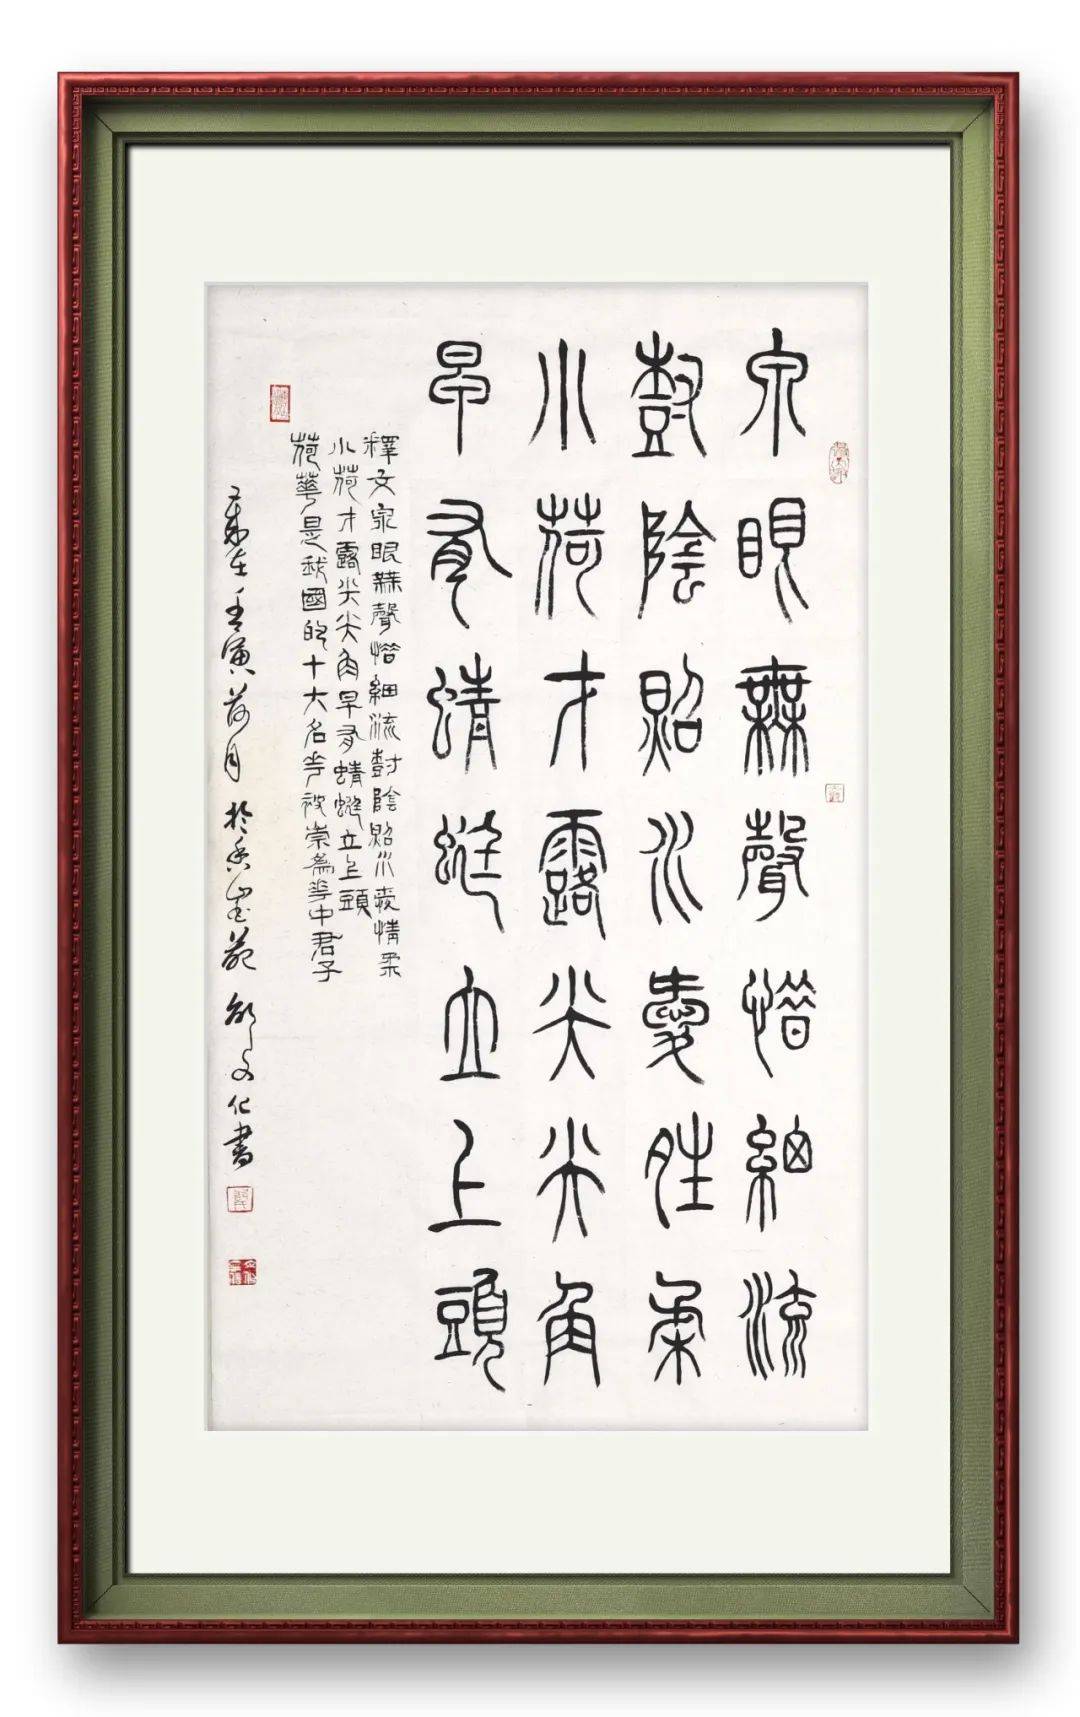 泉眼無聲惜細流
樹陰照水愛晴柔
小荷才露尖尖角
早有蜻蜓立上頭
釋文泉眼無聲惜細流樹陰照水愛情柔
小荷才露尖尖角早有蜻蜓立上頭
荷華是我國的十大名花被崇為花中君子
歲在壬寅荷月於香山苑邵文化書